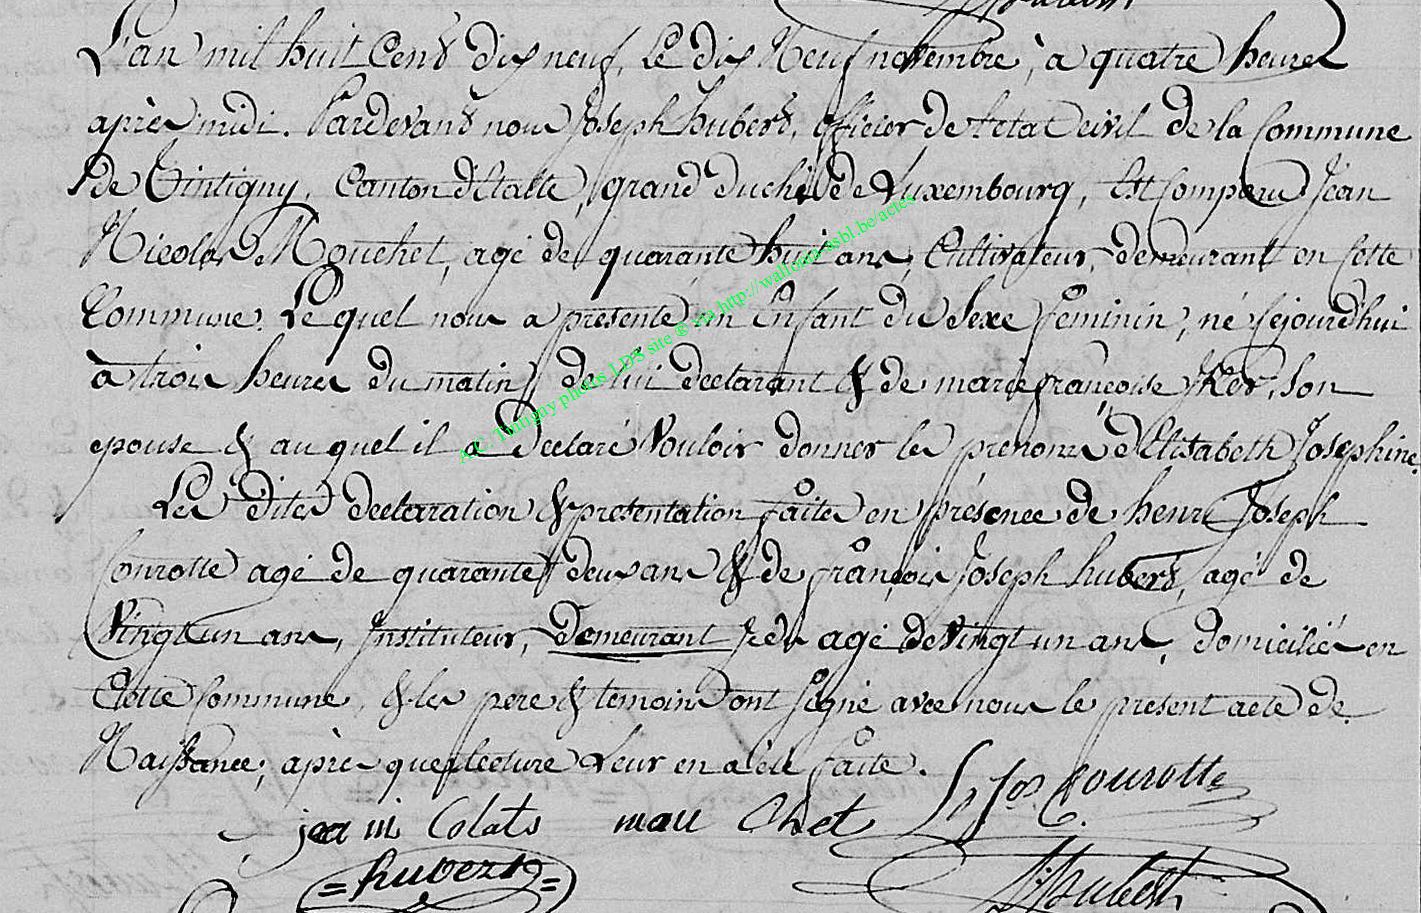 L'an mil huit Cent dix neuf, Le dix Neuf novembre, à quatre heures
après midi. Pardevant nous Joseph hubert, officier de letat civil de la Commune
de Tintigny, Canton d'Etalle, grand duché de Luxembourg, Est Comparu Jean
Nicolas Mouchet, agé de quarante huit ans, Cultivateur, demeurant en Cette
Commune. Le quel nous a presenté un Enfant du Sexe feminin, né Cejourd'hui
à trois heures du matin, de lui declarant & de marie françoise, Son
epouse & au quel il a Declaré Vouloir donner les prenoms d'Elisabeth Josephine.
Les dites declaration & presentation faites en présence de henri Joseph
Conrotte agé de quarante deux ans & de françois Joseph hubert, agé de
Vingt un ans, Instituteur, demeurant agé de Vingt un ans, domiciliés en
Cette Commune, & les pere & temoins ont signé avec nous le present acte de
Naissance, après que lecture Leur en a été faite.
jean ni Colats mau Chet h Jos Conrotte
=hubert= J: hubert
A.C. Tintigny photos LDS site © via http://wallonia-asbl.be/actes